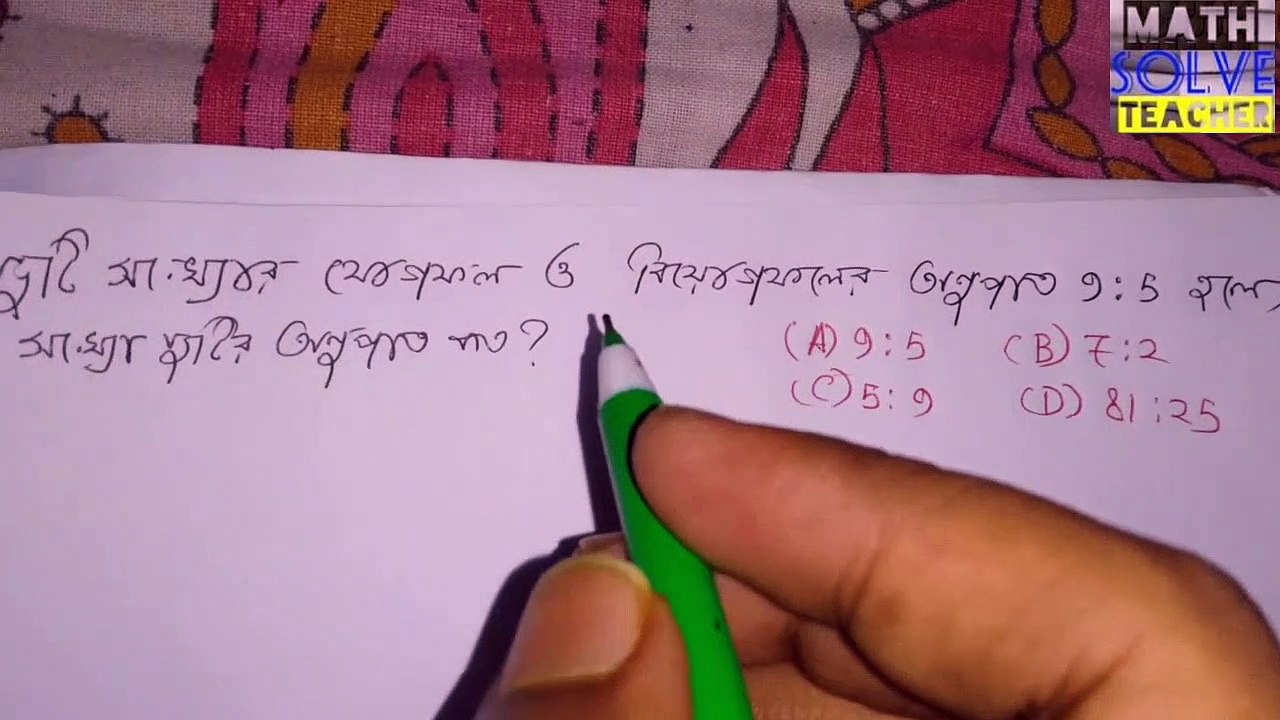 MATH
SOLVE
TEACHER
দুটি সংখ্যার যোগফল ও বিয়োগফলের অনুপাত 9:5 হলে,
সংখ্যা দুটির অনুপাত কত?
(A) 9:5 (B) 7:2
(C) 5:9 (D) 81:25